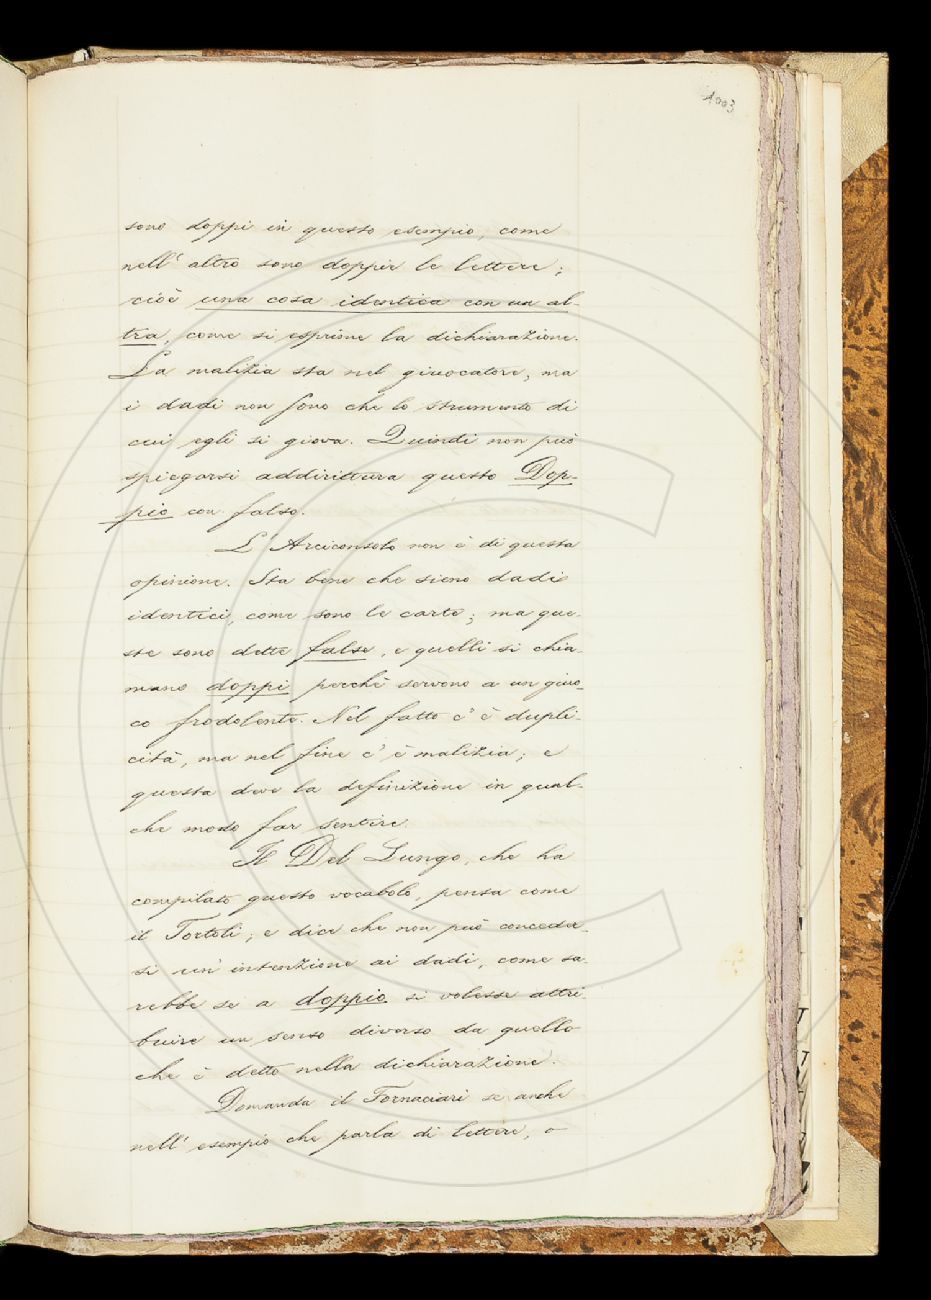 1003
sono doppi in questo esempio, come
nell' altro sono doppie le lettere;
cioè una cosa identica con un al-
tra, come si esprime la dichiarazione.
La malizia sta nel giuocatore, ma
i dadi non sono che lo strumento di
cui egli si giova. Quindi non può
spiegarsi addirittura questo Dop-
pio con falso.
L'Arciconsolo non è di questa
opinione. Sta bene che sieno dadi
identici, come sono le carte; ma que-
ste sono dette false, e quelli si chia-
mano doppi perchè servono a un giuo-
co frodolento. Nel fatto c'è dupli-
cità, ma nel fine c'è malizia; e
questa deve la definizione in qual-
che modo far sentire.
Il Del Lungo, che ha
compilato questo vocabolo, pensa come
il Tortoli; e dice che non può conceder-
si un' intenzione ai dadi, come sa-
rebbe se a doppio si volesse attri-
buire un senso diverso da quello
che è detto nella dichiarazione.
Domanda il Fornaciari se anche
nell' esempio che parla di lettere, o